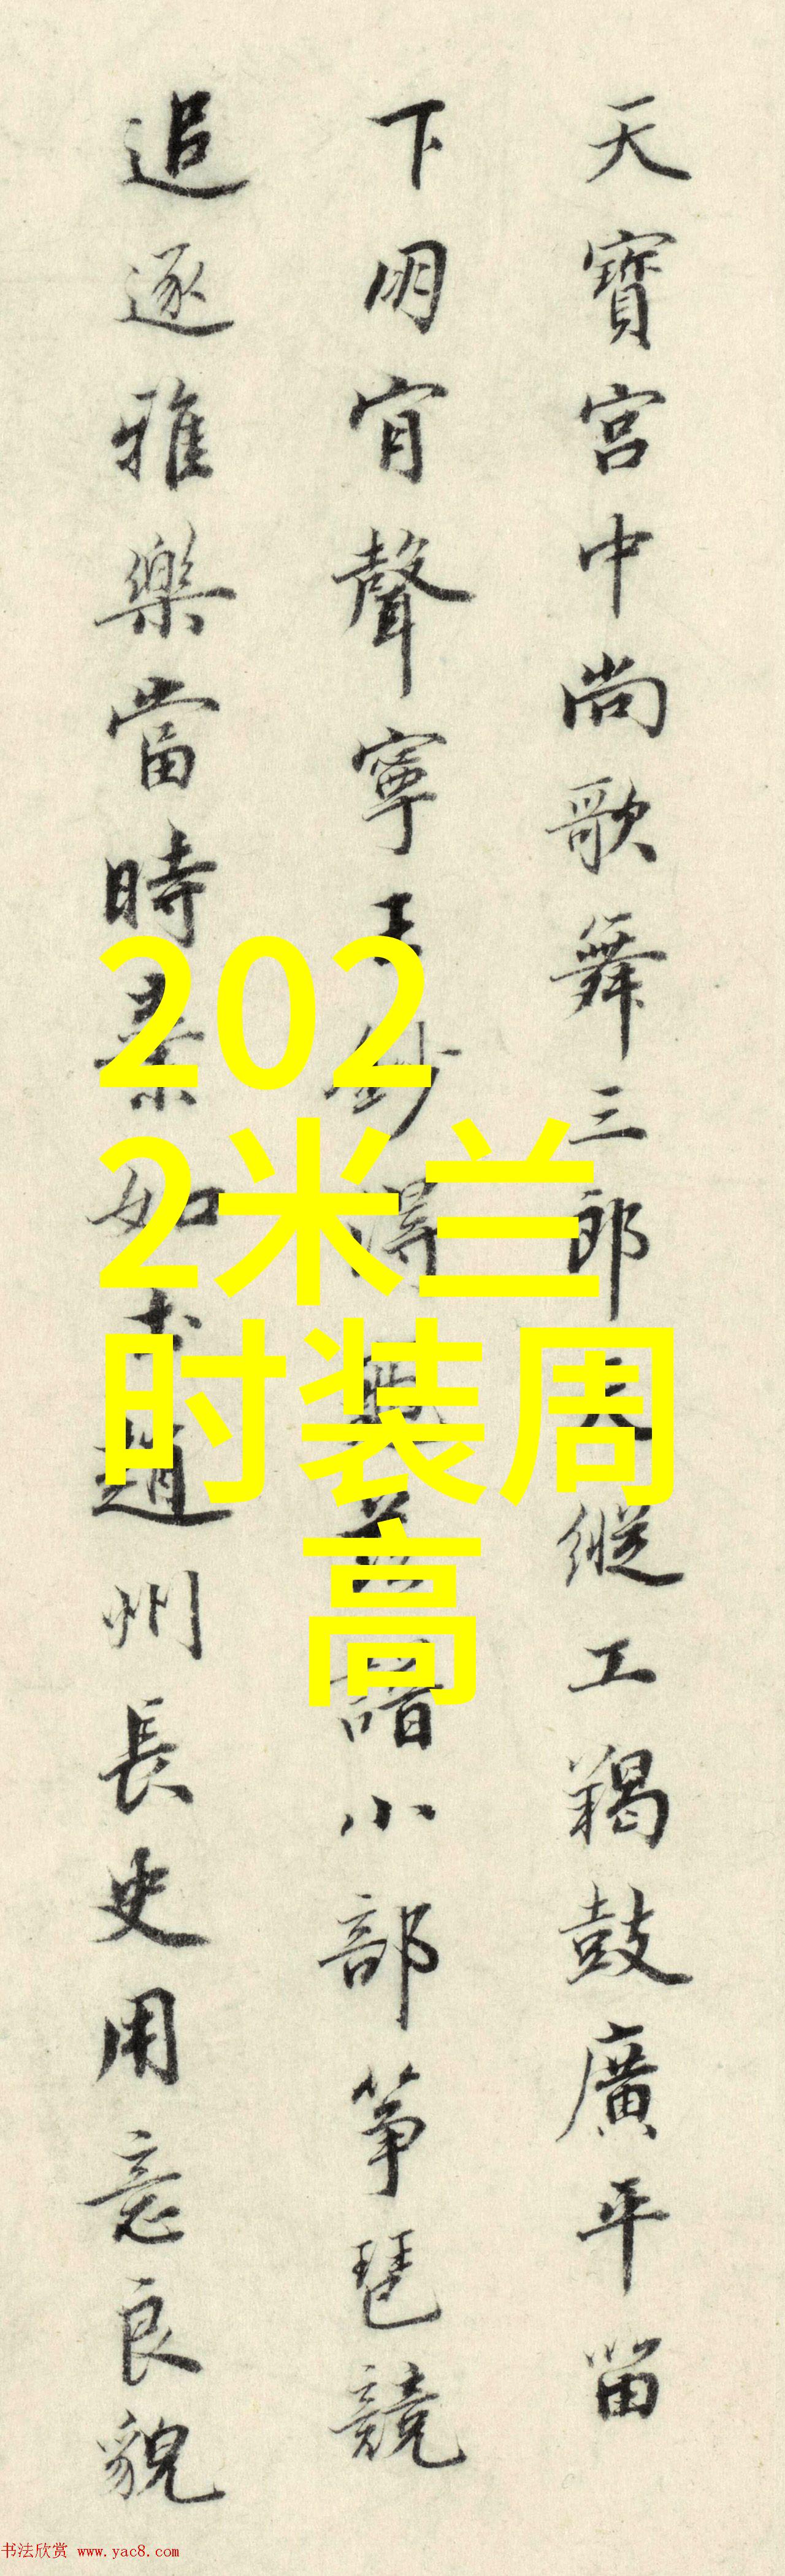 天寶宫中尚歌舞三郎天縱工羯鼓廣平留
下朙肯聲寧王鈔得
譜小部筝琵競
追逐雅樂當時
如
趙州長史用意良貌
202
2米兰
时装周
高
书法欣赏 www.yac8.com